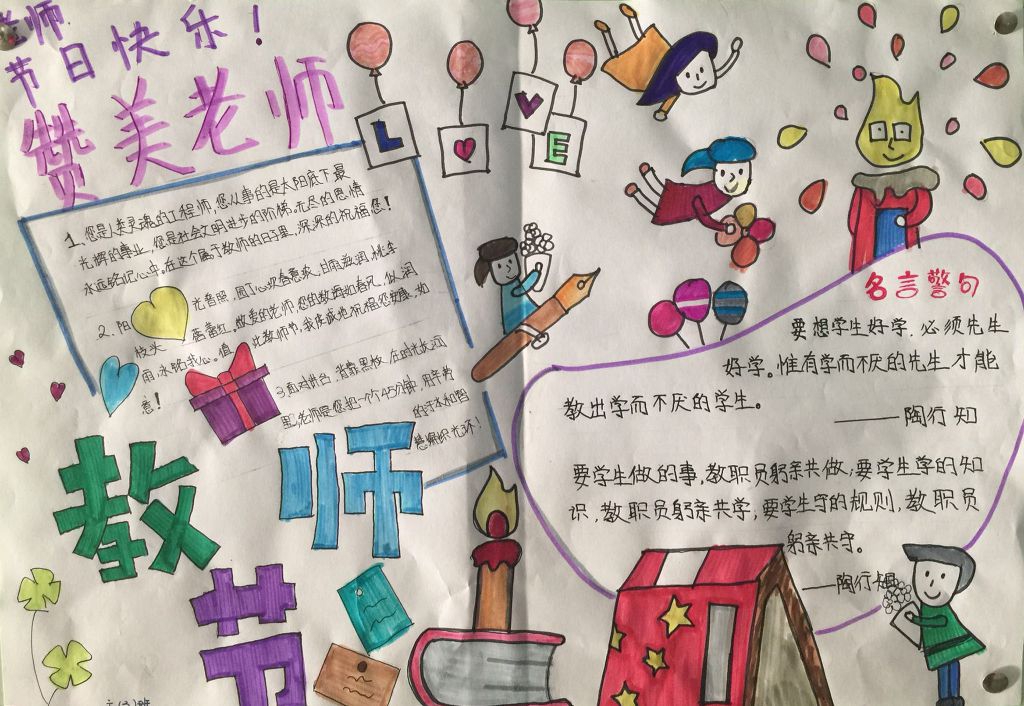 老师
节日快乐!
赞美老师
L
V
E
1.您是人类灵魂的工程师,您从事的是太阳底下最
光辉的事业,您是社会文明进步的阶梯,无尽的恩情
永远铭记心中。在这个属于教师的日子里,深深的祝福您!
2.阳 光普照,园丁心坎春意浓,甘雨滋润,桃李
枝头 蓓蕾红。敬爱的老师,您的教诲如春风,似润
雨,永铭我心。值 此教师节,我虔诚地祝福您安康,如
意!
3.面对讲台,背靠黑板,在时光长河
里,老师是您把一个个45分钟,用辛勤
的汗水和智
慧编织光环!
教师
节
名言警句
要想学生好学,必须先生
好学。惟有学而不厌的先生才能
教出学而不厌的学生。
——陶行知
要学生做的事,教职员躬亲共做;要学生学的知
识,教职员躬亲共学;要学生守的规则,教职员
躬亲共守。
——陶行知